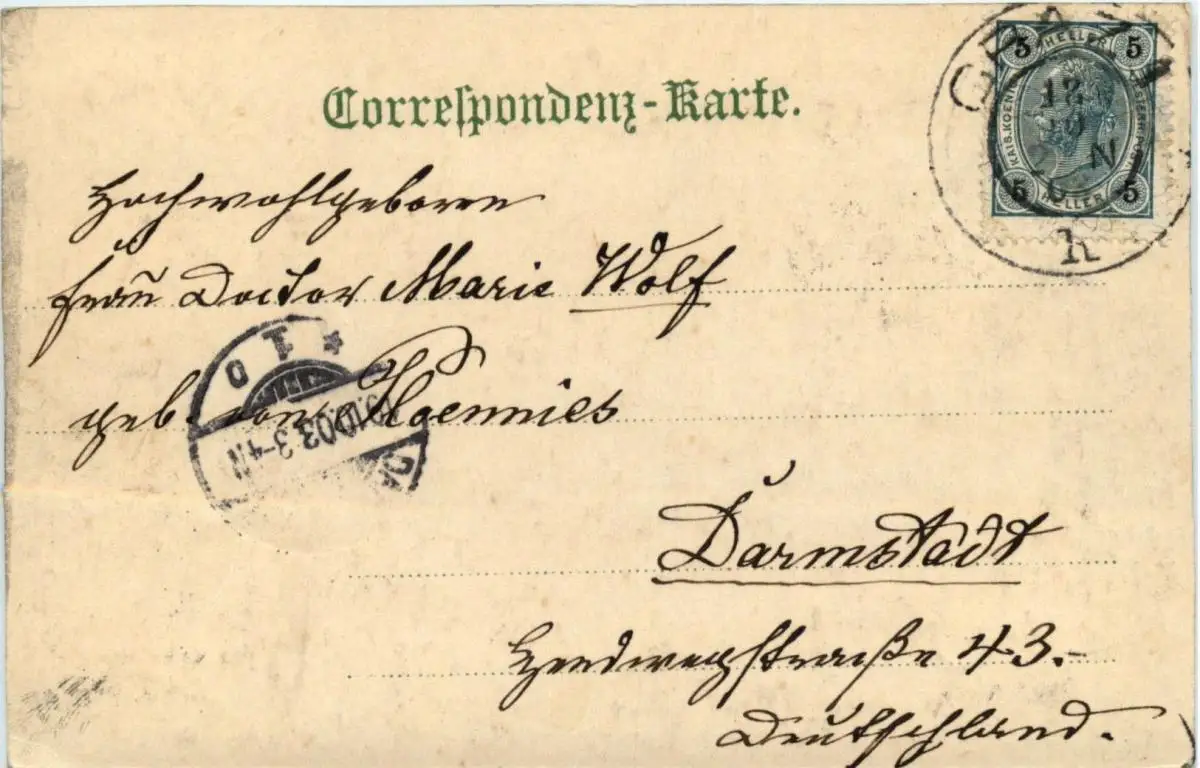 Correspondenz-Karte.
5 HELLER 5
KAIS. KOENIGL.
5 HELLER 5
GRAZ 1
12
10
N
h
Hochwohlgeboren
Frau Doctor Marie Wolf
geb. von Hoennies
Darmstadt
43.-
Deutschland.
10.03 3-4 N